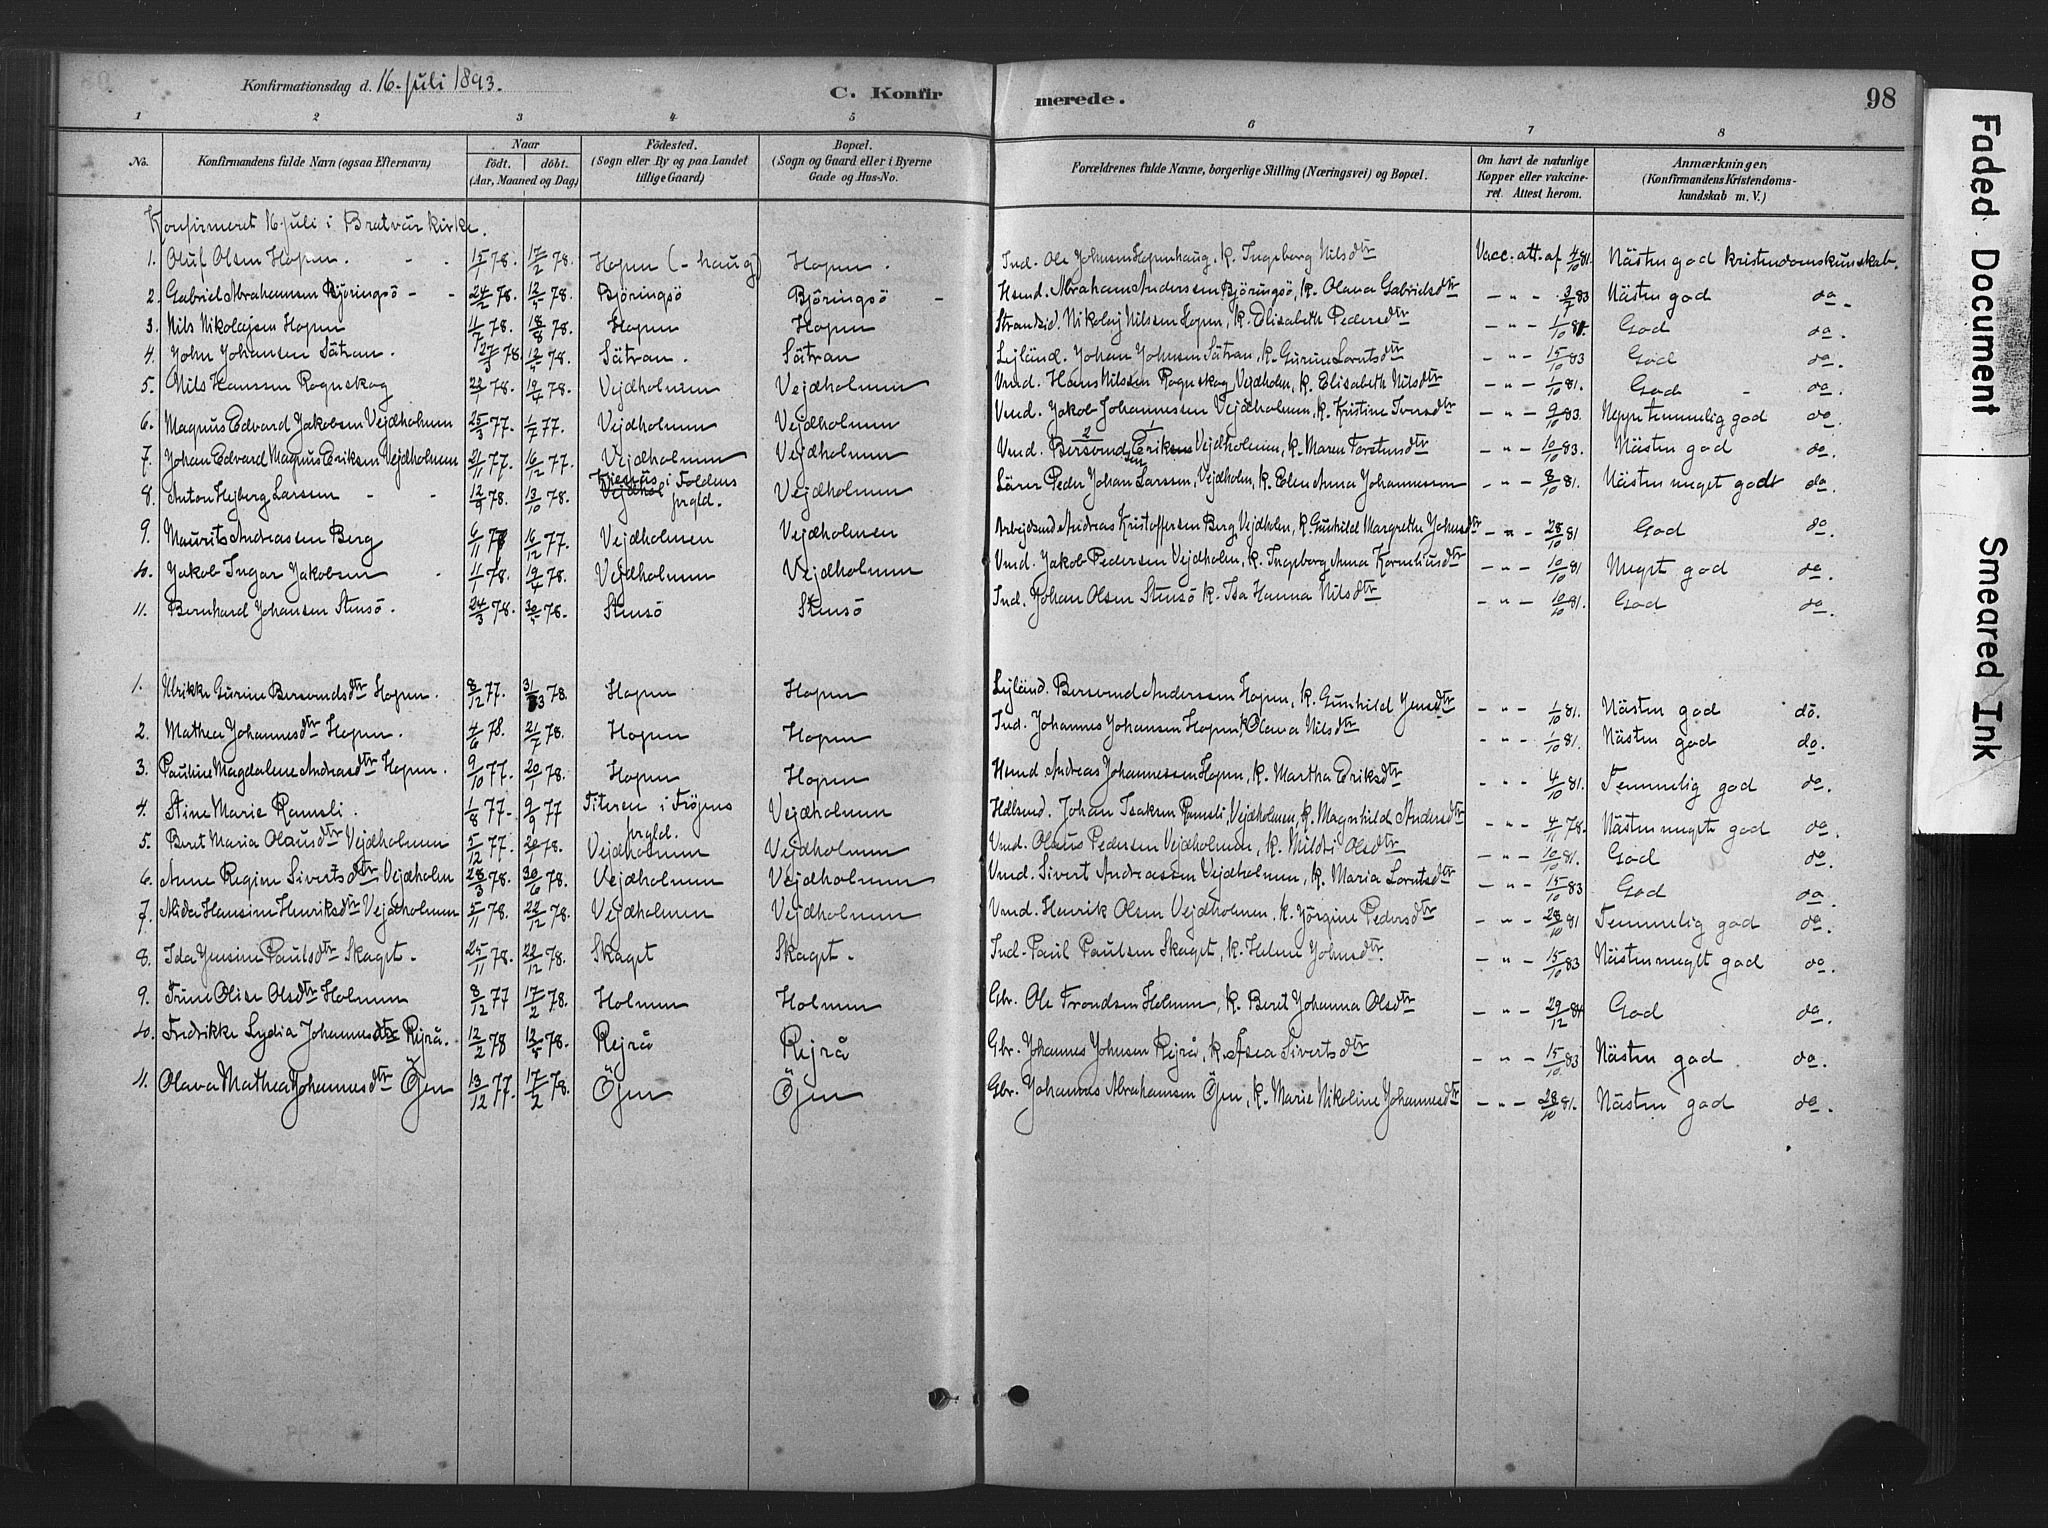 Konfirmationsdag d. 16. juli 1893.
C. Konfir
merede.
98
1 2 3 4 5 6 7 8
No. Konfirmandens fulde Navn (ogsaa Efternavn) Naar født. døbt. (Aar, Maaned og Dag) Födested. (Sogn eller By og paa Landet tillige Gaard) Bopæl. (Sogn og Gaard eller i Byerne Gade og Hus-No. Forældrenes fulde Navne, borgerlige Stilling (Næringsvei) og Bopæl. Om havt de naturlige Kopper eller vakcineret. Attest herom. Anmærkninger, (Konfirmandens Kristendomskundskab m. V.)
Konfirmeret 16 juli i Bratvär kirke.
1. Oluf Olsen Hopen. 15/1 78. 17/2 78. Hopen (-haug) Hopen. Ind. Ole Johnsen Hopenhaug, k. Ingeborg Nilsdtr Vacc. att. af 4/10 81. Nästen god kristendomskunskab.
2. Gabriel Abrahamsen Björingsö 24/2 78. 12/5 78. Björingsö Björingsö Hsmd. Abraham Anderssen Björingsö, k. Olava Gabrielsdtr - " - 3/7 83 Nästen god do.
3. Nils Nikolajsen Hopen 11/7 78. 18/8 78. Hopen Hopen Strandsid. Nikolaj Nilssen Hopen, k. Elisabeth Pedersdtr - " - 1/10 81. God do.
4. John Johansen Sätran. 27/3 78. 12/5 78. Sätran. Sätran Lejländ. Johan Johnsen Sätran, k. Gurine Lorntsdtr - " - 15/10 83 God do.
5. Nils Hanssen Rognskog 22/1 78. 19/4 78. Vejdholmen Vejdholmen Vmd. Hans Nilssen Rognskog, Vejdholm, k. Elisabeth Nilsdtr - " - 1/10 81. God do.
6. Magnus Edvard Jakobsen Vejdholmen 25/3 77. 1/7 77. Vejdholmen Vejdholmen Vmd. Jakob Johannessen Vejdholmen, k. Kristine Iversdtr - " - 9/10 83. Neppe temmelig god do.
7. Johan Edvard Magnus Eriksen Vejdholmen 21/11 77. 16/12 77. Vejdholmen Vejdholmen Vmd. Bersvendsen Erik Vejdholmen, k. Maren dtr - " - 10/10 83. Nästen god do.
8. Anton Hejberg Larssen 12/9 78. 13/10 78. i Foldens prgld. Vejdholmen Lärer Peder Johan Larssen, Vejdholm, k. Elen Anna Johannessen - " - 8/10 81. Nästen meget godt do.
9. Maurits Andreassen Berg 6/11 77 16/12 77. Vejdholmen Vejdholmen Arbejdsmd Andreas Kristoffersen Berg, Vejdholm, k. Gunhild Margrethe Johnsdtr - " - 28/10 81 God do.
10. Jakob Ingar Jakobsen 11/1 78. 19/4 78. Vejdholmen Vejdholmen Vmd. Jakob Pedersen Vejdholm, k. Ingeborg Anna Korneliusdtr - " - 10/10 81 Meget god do.
11. Bernhard Johansen Stensö. 24/3 78. 30/5 78. Stensö Stensö Ind. Johan Olsen Stensö k. Isa Hanna Nilsdtr - " - 10/10 81. God do.
1. Ulrikke Gurine Bersvendsdtr Hopen. 8/12 77. 31/3 78. Hopen Hopen Lejländ. Bersvend Anderssen Hopen, k. Gunhild Jensdtr - " - 1/10 81. Nästen god do.
2. Mathea Johannesdtr Hopen. 4/6 78. 21/7 78. Hopen Hopen Ind. Johannes Johansen Hopen, k. Olava Nilsdtr - " - 1/10 81. Nästen god do.
3. Pauline Magdalene Andreasdtr Hopen. 9/10 77. 20/1 78. Hopen Hopen Hsmd Andreas Johannessen Hopen, k. Martha Eriksdtr - " - 4/10 81. Temmelig god do.
4. Stine Marie Ramsli. 1/8 77. 9/9 77 Titeren i Fröjens prgld. Vejdholmen Hdlsmd. Johan Isaksen Ramsli, Vejdholmen, k. Magnhild Andersdtr - " - 4/11 78. Nästen meget god do.
5. Beret Maria Olausdtr Vejdholmen 5/12 77. 20/1 78. Vejdholmen Vejdholmen Vmd. Olaus Pedersen Vejdholmen, k. Mildri Olsdtr - " - 10/10 81. God do.
6. Anne Regine Sivertsdtr Vejdholm 28/3 78. 30/6 78. Vejdholmen Vejdholmen Vmd. Sivert Andreassen Vejdholmen, k. Maria Lorntsdtr - " - 15/10 83 God do.
7. Alida Hansine Henriksdtr Vejdholmen 5/11 78. 22/12 78. Vejdholmen Vejdholmen Vmd. Henrik Olsen Vejdholmen, k. Jörgine Pedersdtr - " - 28/10 81 Temmelig god do.
8. Ida Jensine Paulsdtr Skaget. 25/11 78. 22/12 78. Skaget Skaget. Ind. Paul Paulsen Skaget, k. Helene Johnsdtr. - " - 15/10 83 Nästen meget god do.
9. Trine Olise Olsdtr Holmen 8/12 77 17/2 78. Holmen Holmen Gbr. Ole Trondsen Holmen, k. Beret Johanna Olsdtr - " - 29/12 81 God do.
10. Fredrikke Lydia Johannesdtr Rejrå. 12/2 78 12/5 78. Rejrå Rejrå Gbr. Johannes Johnsen Rejrå, k. Åsea Sivertsdtr - " - 15/10 83 Nästen god do.
11. Olava Mathea Johannesdtr Öjen 13/12 77. 17/2 78. Öjen Öjen Gbr. Johannes Abrahamsen Öjen, k. Marie Nikoline Johannesdtr - " - 28/10 81. Nästen god do.
Faded Document
Smeared Ink